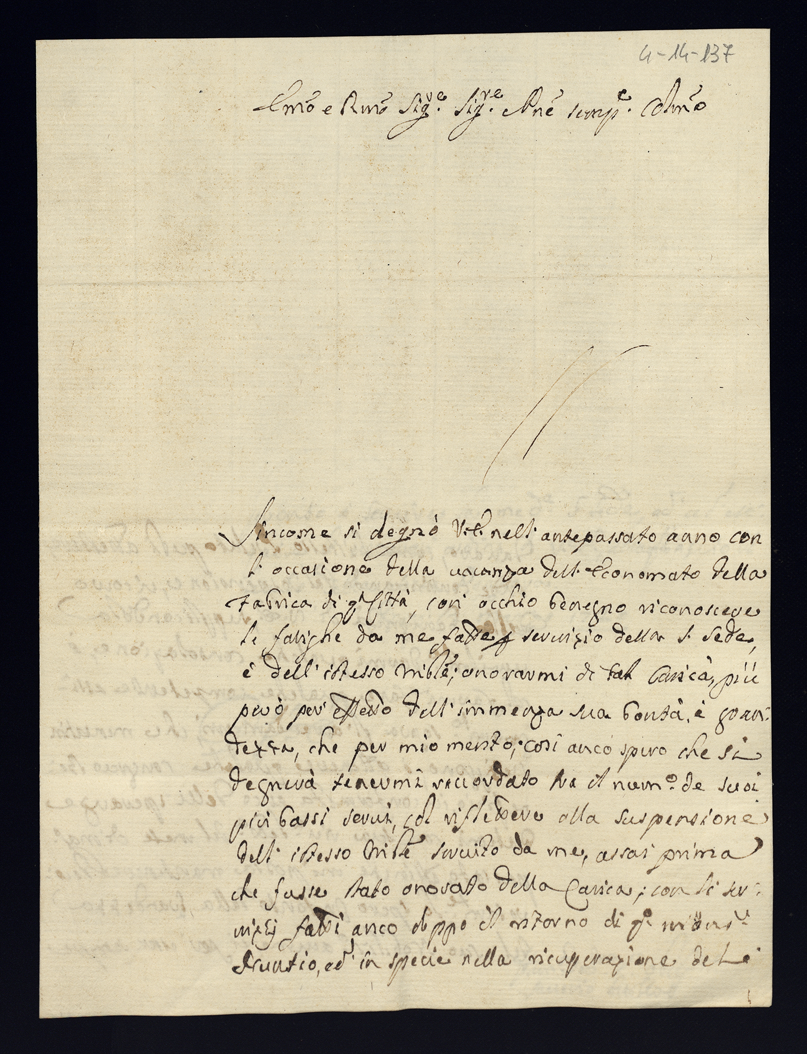 4-14-137
Em͂o e Rm͂o Sig.re Sig.re Pn͂e semp.e Colm͂o
Sincome si degnò V.E. nell' antepassato anno con
l' occasione della vacanza dell' Economato della
Fabrica di q.a Città, con occhio benegno riconoscere
le fatighe da me fatte p servizio della S. Sede,
è dell' istesso Trib.le, onorarmi di tal Carica, più
però per effetto dell' immenza sua bontà, è gran
dezza, che per mio merito; così anco spero che si
degnerà tenermi riccordato tra il num.o de suoi
più bassi servi, col riflettere alla suspensione
dell' istesso Trib.le servito da me, assai prima
che fusse stato onorato della Carica; con li ser-
vizij fatti anco doppo il ritorno di q.o Mons.r
Nuntio, ed' in specie nella ricuperazione de Le